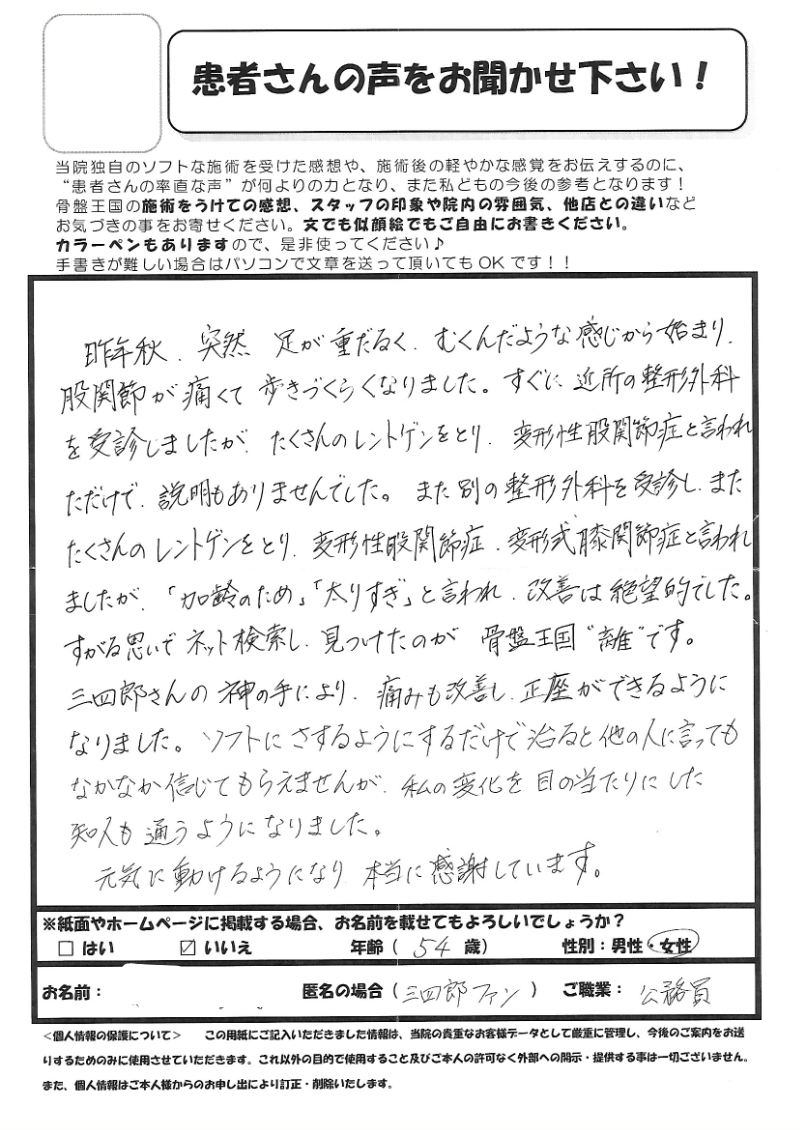 患者さんの声をお聞かせ下さい！
当院独自のソフトな施術を受けた感想や、施術後の軽やかな感覚をお伝えするのに、
“患者さんの率直な声”が何よりの力となり、また私どもの今後の参考となります！
骨盤王国の施術をうけての感想、スタッフの印象や院内の雰囲気、他店との違いなど
お気づきの事をお寄せください。文でも似顔絵でもご自由にお書きください。
カラーペンもありますので、是非使ってください♪
手書きが難しい場合はパソコンで文章を送って頂いてもOKです！！
昨年秋、突然 足が重だるく、むくんだような感じから始まり、
股関節が痛くて歩きづくらくなりました。すぐに近所の整形外科
を受診しましたが、たくさんのレントゲンをとり、変形性股関節症と言われ
ただけで、説明もありませんでした。また別の整形外科を受診し、また
たくさんのレントゲンをとり、変形性股関節症、変形式膝関節症と言われ
ましたが、「加齢のため」「太りすぎ」と言われ、改善は絶望的でした。
すがる思いでネット検索し、見つけたのが 骨盤王国“離”です。
三四郎さんの神の手により、痛みも改善し、正座ができるように
なりました。ソフトにさするようにするだけで治ると他の人に言っても
なかなか信じてもらえませんが、私の変化を目の当たりにした
知人も通うようになりました。
元気に動けるようになり 本当に感謝しています。
※紙面やホームページに掲載する場合、お名前を載せてもよろしいでしょうか？
□ はい ☑ いいえ 年齢（ 54 歳） 性別：男性・女性
お名前： 匿名の場合（三四郎ファン） ご職業： 公務員
＜個人情報の保護について＞ この用紙にご記入いただきました情報は、当院の貴重なお客様データとして厳重に管理し、今後のご案内をお送
りするためのみに使用させていただきます。これ以外の目的で使用すること及びご本人の許可なく外部への開示・提供する事は一切ございません。
また、個人情報はご本人様からのお申し出により訂正・削除いたします。